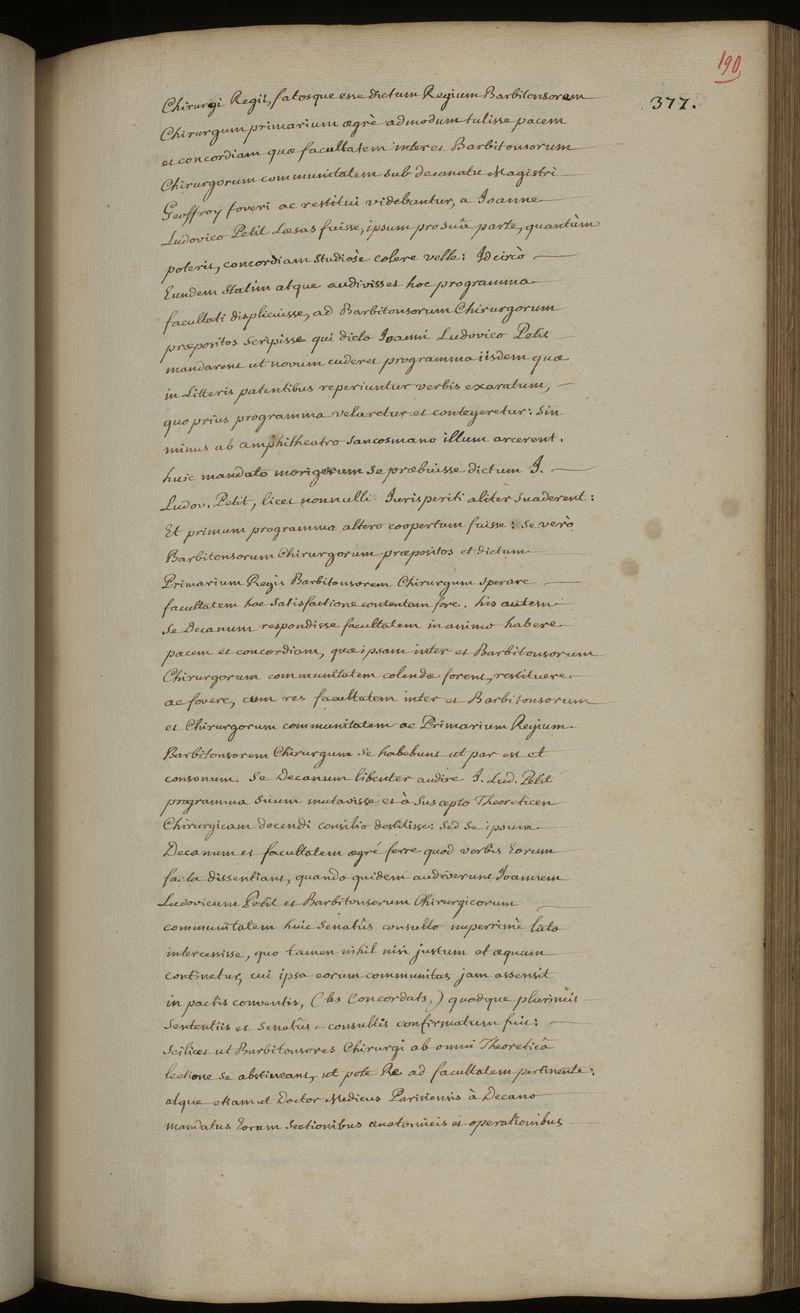 190
377.
Chirurgi Regii, fatosque esse dictum Regium Barbitonsorem
Chirurgum primarium ægrè admodum tulisse pacem
et concordiam quæ facultatem inter et Barbitonsorum
Chirurgorum communitatem sub decanatu Magistri
Geoffroy foveri ac restitui videbantur, a Joanne
Ludovico Petit Læsas fuisse, ipsum pro suâ parte, quantùm
poterit, concordiam studiosè colere velle: Idcircò
Eundem statim atque audivisset hoc programma
facultati displicuisse, ad Barbitonsorum Chirurgorum
præpositos scripisse qui dicto Joanni Ludovico Petit
mandarent ut novum cuderet programma iisdem quæ
in Litteris patentibus reperiuntur verbis exaratum,
quo prius programma velaretur et contegeretur: Sin
minus ab amphitheatro Sancosmano illum arcerent.
huic mandato morigerum se præbuisse dictum J.
Ludov. Petit, licet nonnulli Jurisperiti aliter suaderent:
Et primum programma altero coopertum fuisse: se verò
Barbitonsorum Chirurgorum præpositos et dictum
Primarium Regis Barbitonsorem Chirurgum sperare
facultatem hac satisfactione contentam fore. his autem
Se Decanum respondisse facultatem in animo habere
pacem et concordiam, quæ ipsam inter et Barbitonsorum
Chirurgorum communitatem colendæ forent, restituere
ac fovere, cum res facultatem inter et Barbitonsorum
et Chirurgorum communitatem ac Primarium Regium
Barbitonsorem Chirurgum se habebunt ut par est et
consonum. Se Decanum libenter audire J. Lud. Petit
programma suum mutavisse et à suscepto Theoreticen
Chirurgicam docendi consilio destitisse: Sed se ipsum
Decanum et facultatem ægré ferre quod verbis Eorum
facta dissentiant, quando quidem audiverunt Joannem
Ludovicum Petit et Barbitonsorum Chirurgicorum
communitatem huic Senatûs consulto nuperrimè lato
intercessisse, quo tamen nihil nisi justum et æquum
continetur, cui ipsa eorum communitas jam assensit
in pactis conventis, (les Concordats,) quodque plurimis
Sententiis et Senatûs-consultis confirmatum fuit:
Scilicet ut Barbitonsores Chirurgi ab omni Theoreticâ
lectione se abstineant, ut pote Re ad facultatem pertinente:
atque etiam ut Doctor Medicus Parisiensis à Decano
Mandatus Eorum Sectionibus anatomicis et operationibus